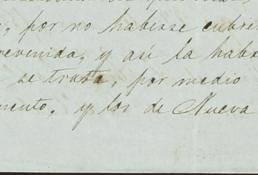 por no haberse cubier
prevenida, y así la habi
se trata, por medio
mento, y los de Nueva